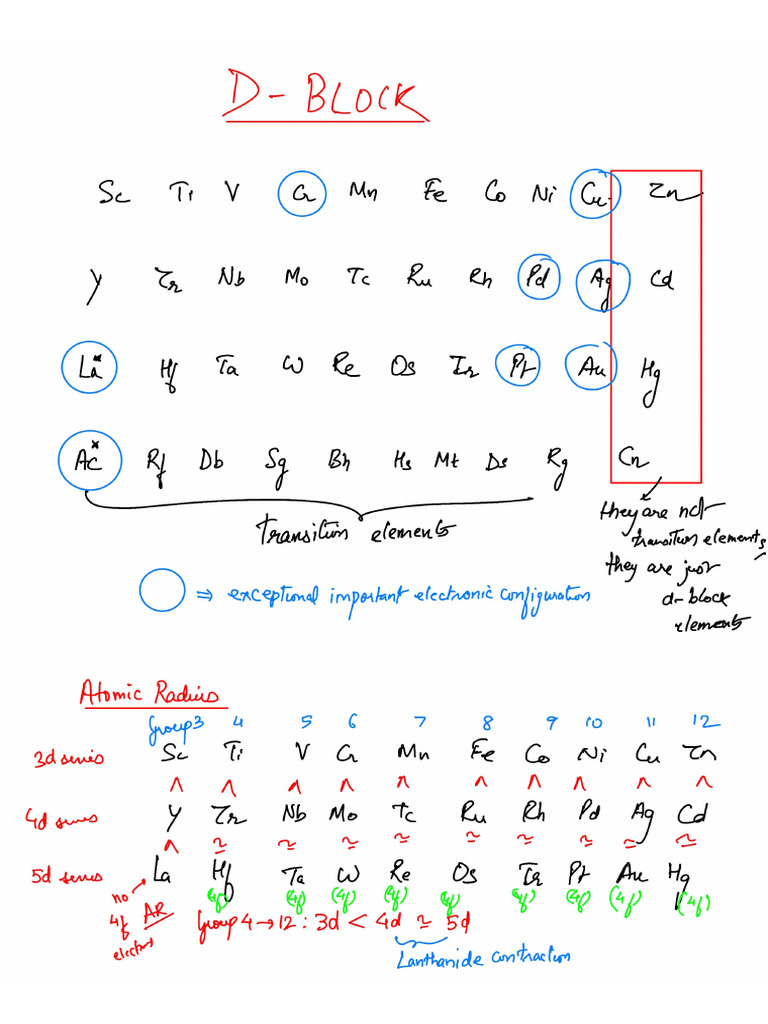 D-BLOCK
Sc Ti V Cr Mn Fe Co Ni Cu Zn
Y Zr Nb Mo Tc Ru Rh Pd Ag Cd
La* Hf Ta W Re Os Ir Pt Au Hg
Ac* Rf Db Sg Bh Hs Mt Ds Rg Cn
transition elements
they are not
transition elements
they are just
d-block
elements
⇒ exceptional important electronic configuration
Atomic Radius
Group 3 4 5 6 7 8 9 10 11 12
3d series Sc Ti V Cr Mn Fe Co Ni Cu Zn
^ ^ ^ ^ ^ ^ ^ ^ ^ ^
4d series Y Zr Nb Mo Tc Ru Rh Pd Ag Cd
^ ≃ ≃ ≃ ≃ ≃ ≃ ≃ ≃ ≃
5d series La Hf Ta W Re Os Ir Pt Au Hg
(4f) (4f) (4f) (4f) (4f) (4f) (4f) (4f) (4f)
no
4f
electrons
AR
Group 4 → 12 : 3d < 4d ≃ 5d
Lanthanide contraction